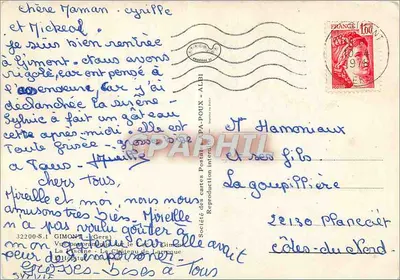 chère Maman. cyrille
et Mickeal.
Je suis bien rentrée
à Gimont. Nous avons
rigolé, car ont pensé à
l'assenseure, car j'ai
déclanchée la sirène.
Sylvie à fait un gâteau
cette après midi. elle est
toute
à Tous.
chers tous,
Mireille et moi, nous nous
amusons très bien. Mireille
n'a pas voulu goûter à
mon gâteau, car elle avait
peur des
Grosses bises à tous
SYLVIE
32200-S.1 GIMONT (Gers)
Société des cartes Postales APA-POUX - ALBI
Reproduction
FRANCE
1,60
CPARTAPHIL
Mr Hamoniaux
et ses fils
La goupillière
22130 Plancoët
Côtes-du-Nord.